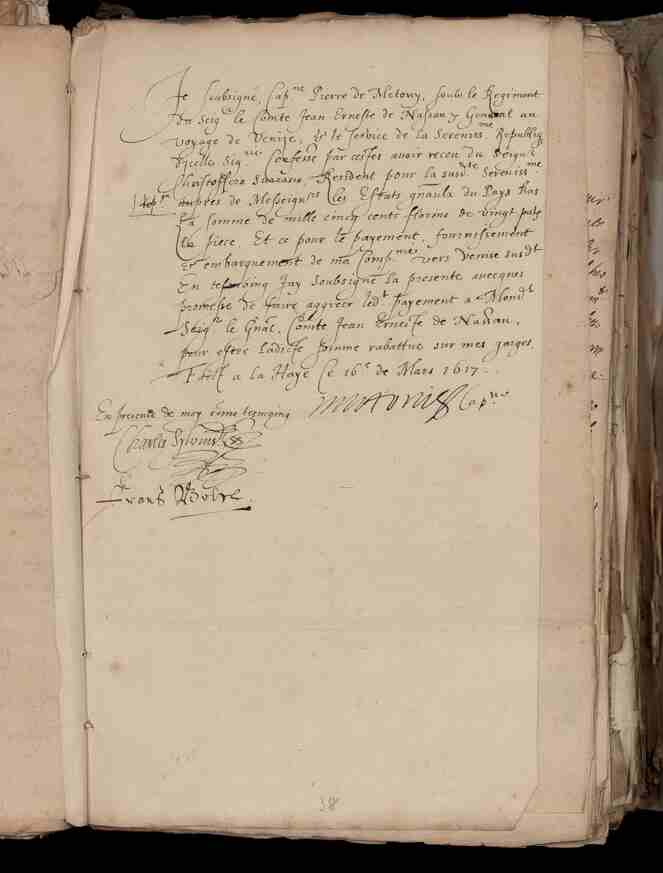 Je soubsigné, Cap.ne Pierre de Metovy, soubs le Regiment
du Seig.r le Comte Jean Erneste de Nassau, General au
voyage de Venize, & le service de la Sereniss.me Republiq.
d'jcelle Sig.rie Confesse par cestes avoir receu du Seign.r
Christoffero Surian, Resident pour la susd.te Sereniss.me
aupres de Messeign.rs les Estats gñaulx du Pays Bas
La somme de mille cincq cents florins de vingt pat.s
la piece, Et ce pour le payement, fournissement
& embarquement de ma Comp.nie vers Venise susd.t
En tesmoing Jay soubsigné la presente avecques
promesse de faire aggreer led.t payement a Mond.t
Seig.r le Gñal, Comte Jean Erneste de Nassau,
pour estre ladicte somme rabattue sur mes gaiges.
Faict a la Haye ce 16.e de Mars 1617.
En presence de moy come tesmoing
Cap.ne
Charles
Frans
38